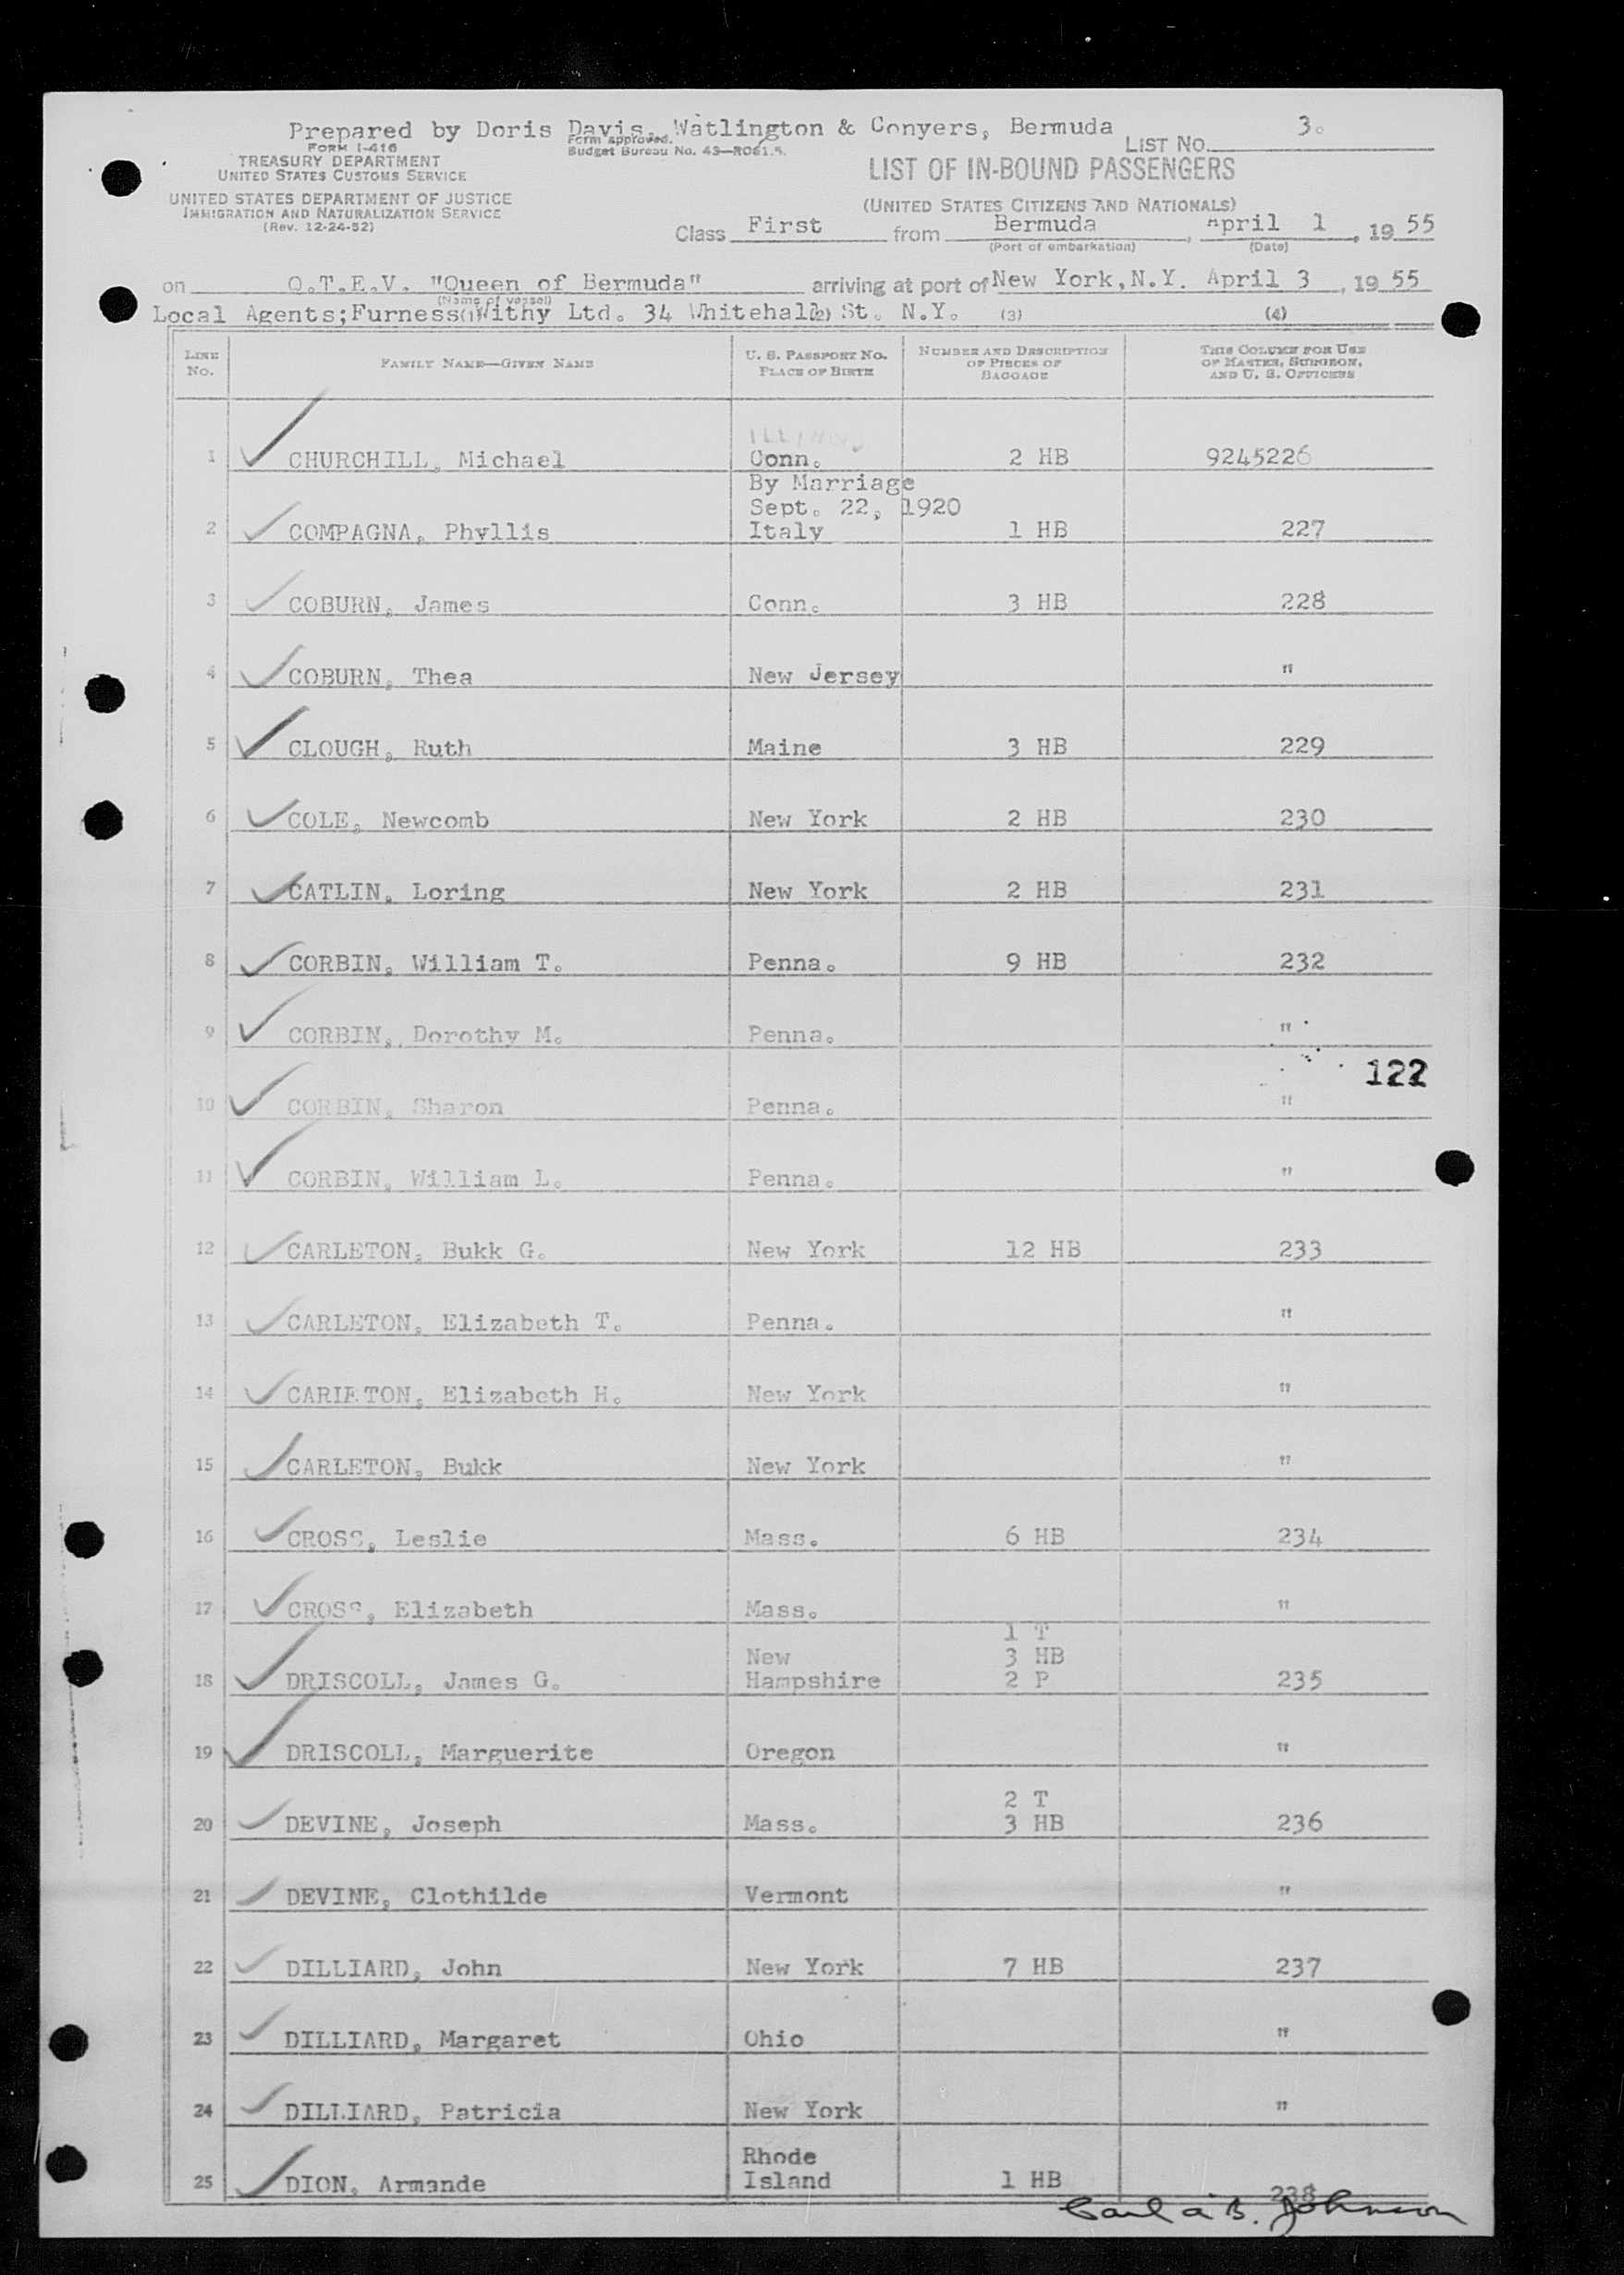 Prepared by Doris Davis, Watlington & Conyers, Bermuda
FORM I-416
Form approved.
Budget Bureau No. 43—R061.5.
LIST NO. 3.
TREASURY DEPARTMENT
UNITED STATES CUSTOMS SERVICE
LIST OF IN-BOUND PASSENGERS
UNITED STATES DEPARTMENT OF JUSTICE
IMMIGRATION AND NATURALIZATION SERVICE
(Rev. 12-24-52)
(UNITED STATES CITIZENS AND NATIONALS)
Class First from Bermuda, April 1, 1955
(Port of embarkation) (Date)
on Q.T.E.V. "Queen of Bermuda" arriving at port of New York, N.Y. April 3, 1955
(Name of vessel)
Local Agents; Furness Withy Ltd. 34 Whitehall St. N.Y.
(1) (2) (3) (4)
LINE NO. FAMILY NAME—GIVEN NAME U. S. PASSPORT NO. PLACE OF BIRTH NUMBER AND DESCRIPTION OF PIECES OF BAGGAGE THIS COLUMN FOR USE OF MASTER, SURGEON, AND U. S. OFFICERS
1 CHURCHILL, Michael Conn. 2 HB 9245226
By Marriage
Sept. 22, 1920
2 COMPAGNA, Phyllis Italy 1 HB 227
3 COBURN, James Conn. 3 HB 228
4 COBURN, Thea New Jersey "
5 CLOUGH, Ruth Maine 3 HB 229
6 COLE, Newcomb New York 2 HB 230
7 CATLIN, Loring New York 2 HB 231
8 CORBIN, William T. Penna. 9 HB 232
9 CORBIN, Dorothy M. Penna. "
122
10 CORBIN, Sharon Penna. "
11 CORBIN, William L. Penna. "
12 CARLETON, Bukk G. New York 12 HB 233
13 CARLETON, Elizabeth T. Penna. "
14 CARLETON, Elizabeth H. New York "
15 CARLETON, Bukk New York "
16 CROSS, Leslie Mass. 6 HB 234
17 CROSS, Elizabeth Mass. "
1 T
New 3 HB
18 DRISCOLL, James G. Hampshire 2 P 235
19 DRISCOLL, Marguerite Oregon "
2 T
20 DEVINE, Joseph Mass. 3 HB 236
21 DEVINE, Clothilde Vermont "
22 DILLIARD, John New York 7 HB 237
23 DILLIARD, Margaret Ohio "
24 DILLIARD, Patricia New York "
Rhode
25 DION, Armande Island 1 HB 238
Carl B. Johnson